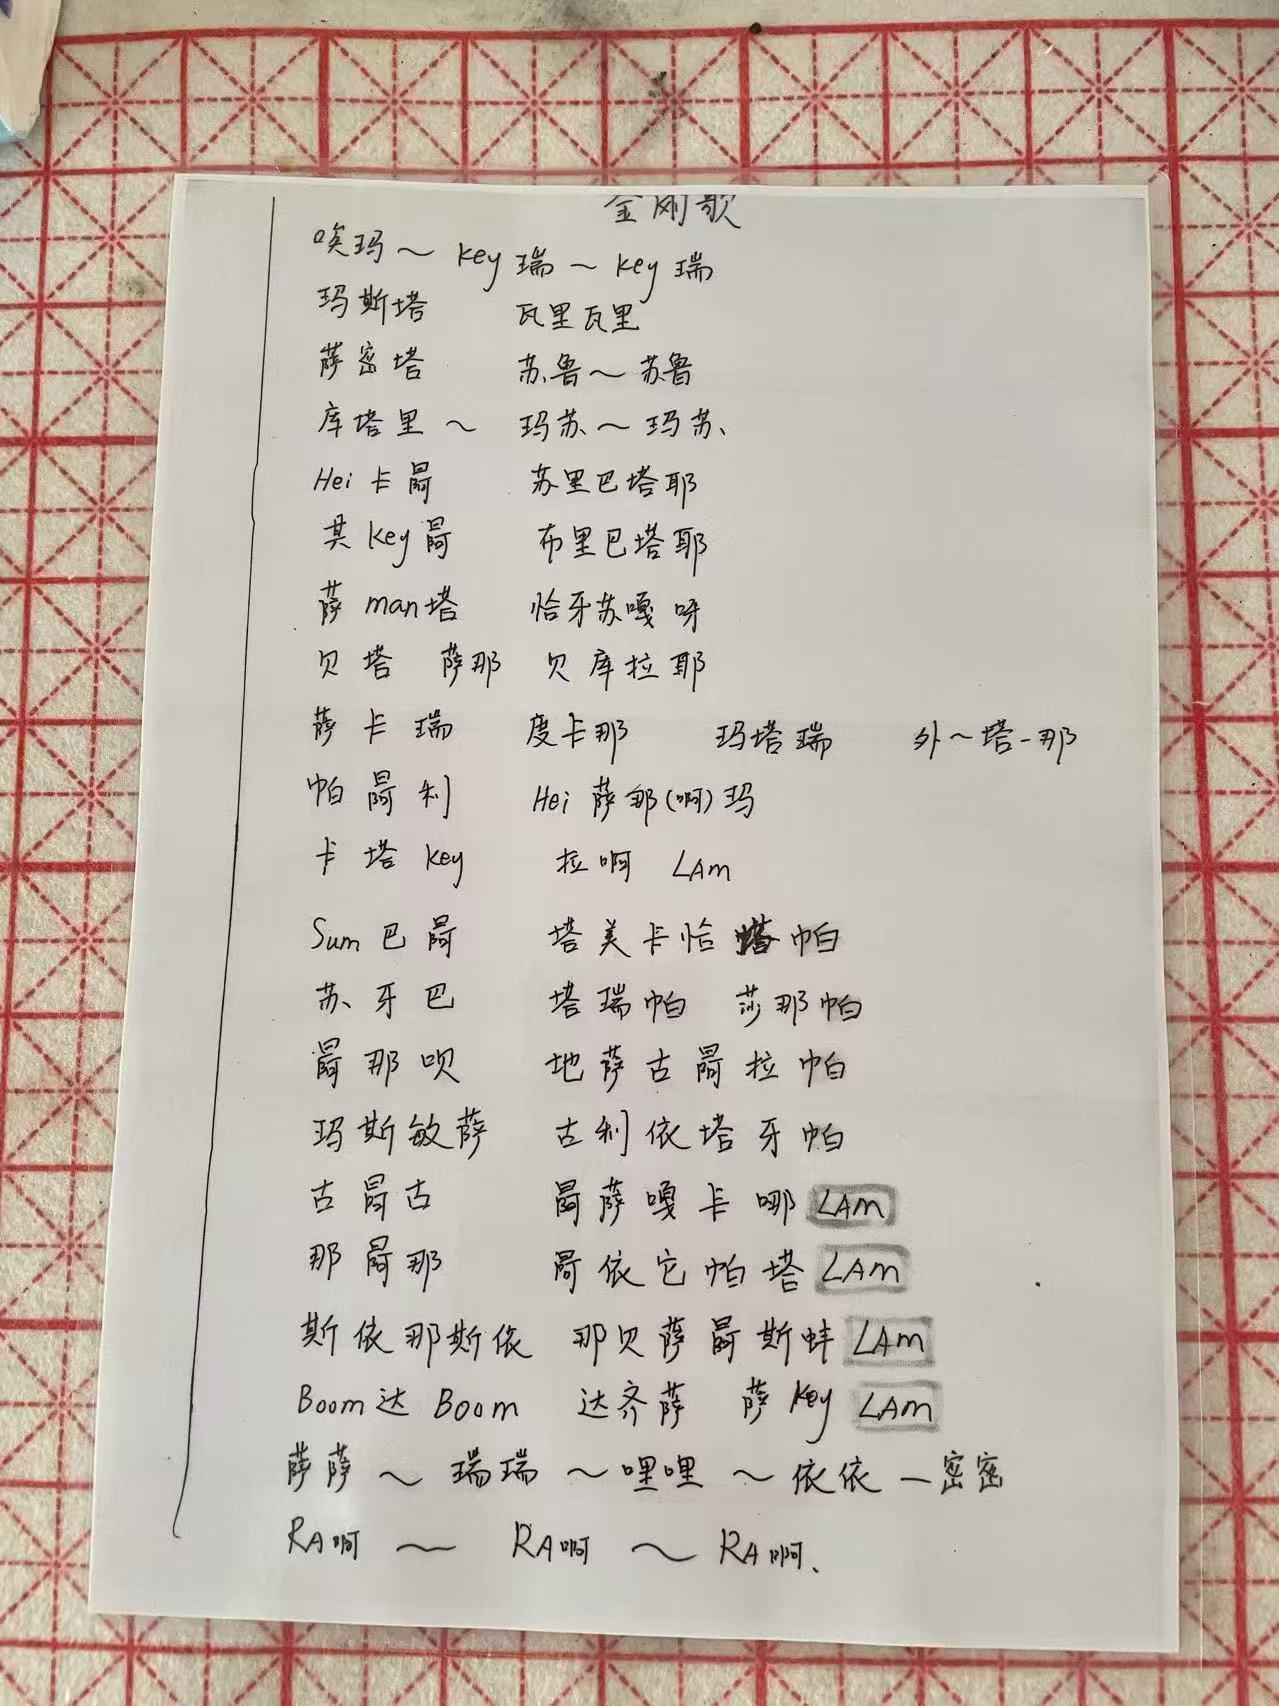 金刚歌
唉玛～ key瑞～key瑞
玛斯塔 瓦里瓦里
萨密塔 苏鲁～苏鲁
库塔里～ 玛苏～玛苏、
Hei卡 苏里巴塔耶
其key 布里巴塔耶
萨man塔 恰牙苏嘎呀
贝塔 萨那 贝库拉耶
萨卡瑞 度卡那 玛塔瑞 外～塔-那
帕 利 Hei萨那(啊)玛
卡塔key 拉啊 LAm
Sum巴 塔美卡恰塔帕
苏牙巴 塔瑞帕 莎那帕
那呗 地萨古 拉帕
玛斯敏萨 古利依塔牙帕
古 古 萨嘎卡哪LAm
那 那 依它帕塔LAm
斯依那斯依 那贝萨 斯蚌LAm
Boom达Boom 达齐萨 萨key LAm
萨萨～瑞瑞～哩哩～依依－密密
RA啊～ RA啊～RA啊、